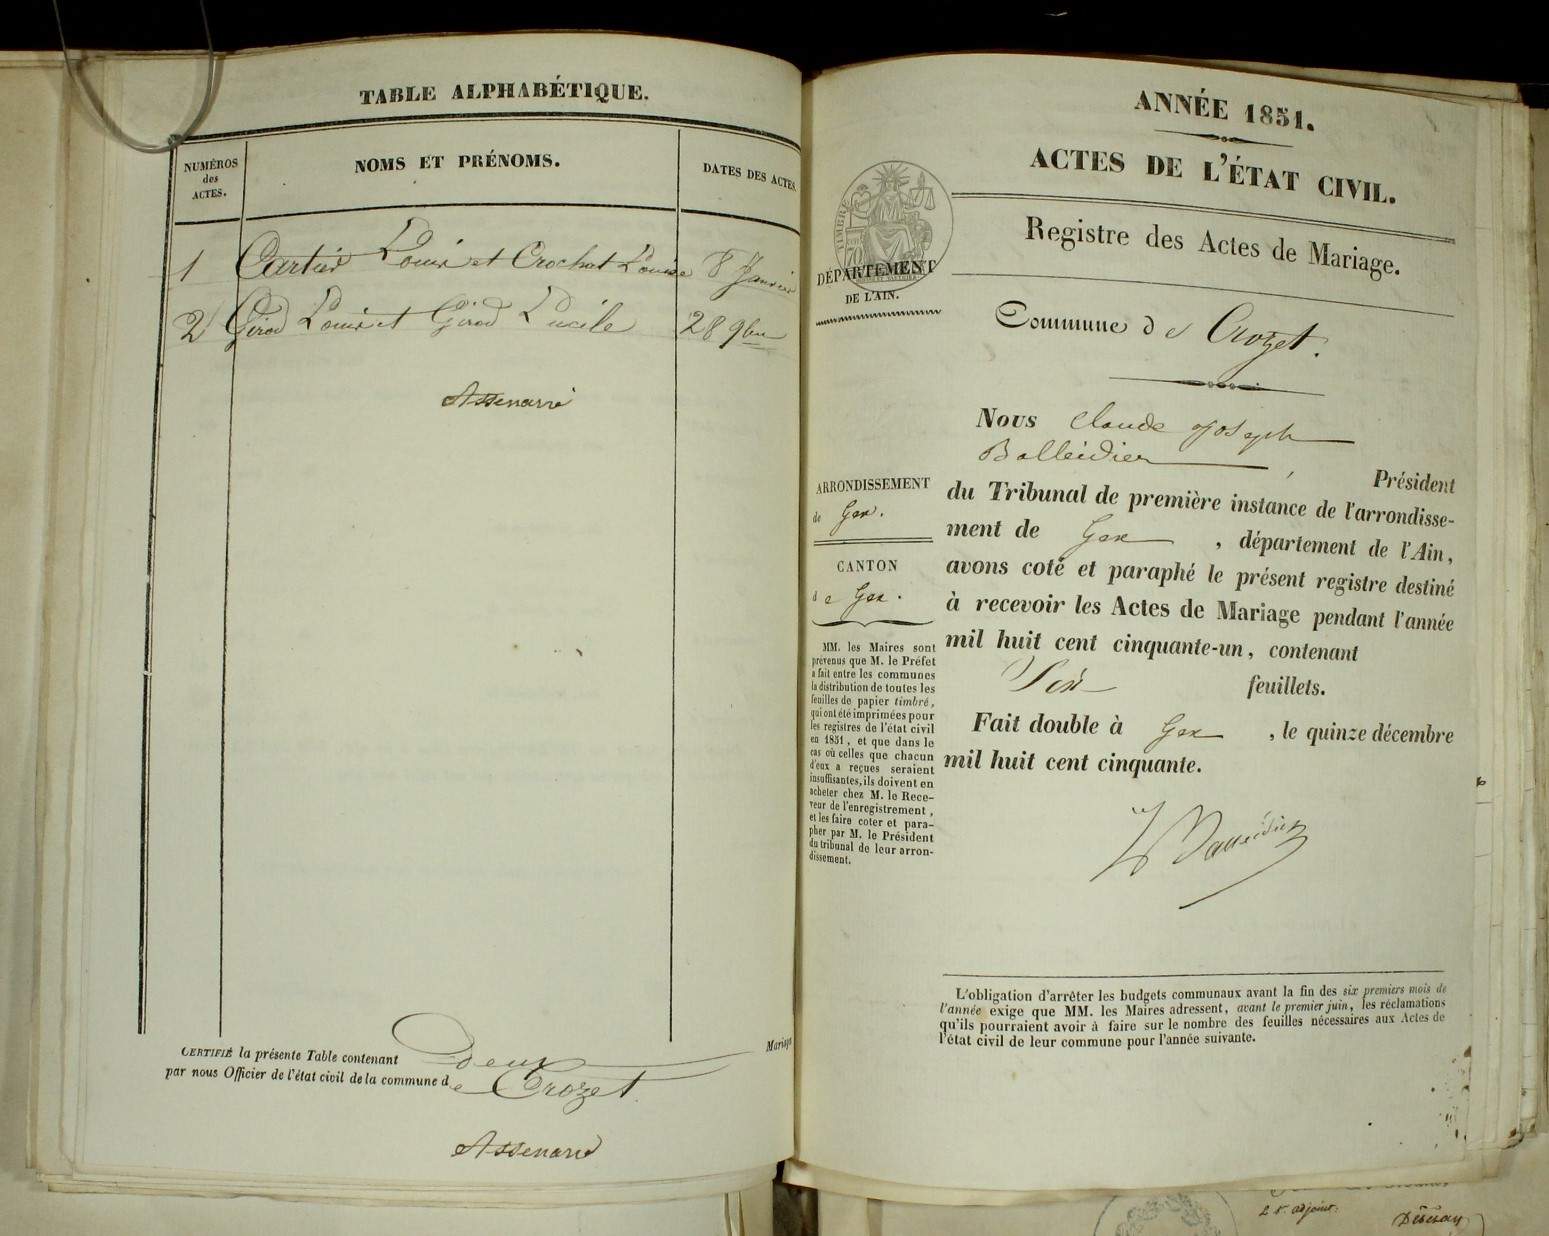 TABLE ALPHABÉTIQUE.
NUMÉROS
des
ACTES.
NOMS ET PRÉNOMS.
DATES DES ACTES.
1 Cartier Louis et Crochat Louise 8 Janvier
2 Girod Louis et Girod Lucile 28 9bre
CERTIFIÉ la présente Table contenant deux Mariages
par nous Officier de l'état civil de la commune de Crozet
ANNÉE 1851.
ACTES DE L'ÉTAT CIVIL.
Registre des Actes de Mariage.
TIMBRE
70
DÉPARTEMENT
DE L'AIN.
Commune de Crozet.
ARRONDISSEMENT
de Gex.
CANTON
de Gex.
MM. les Maires sont
prévenus que M. le Préfet
a fait entre les communes
la distribution de toutes les
feuilles de papier timbré,
qui ont été imprimées pour
les registres de l'état civil
en 1851, et que dans le
cas où celles que chacun
d'eux a reçues seraient
insuffisantes, ils doivent en
acheter chez M. le Rece-
veur de l'enregistrement,
et les faire coter et para-
pher par M. le Président
du tribunal de leur arron-
dissement.
Nous Claude Joseph
Balleidier, Président
du Tribunal de première instance de l'arrondisse-
ment de Gex, département de l'Ain,
avons coté et paraphé le présent registre destiné
à recevoir les Actes de Mariage pendant l'année
mil huit cent cinquante-un, contenant
Six feuillets.
Fait double à Gex, le quinze décembre
mil huit cent cinquante.
Balleidier
L'obligation d'arrêter les budgets communaux avant la fin des six premiers mois de
l'année exige que MM. les Maires adressent, avant le premier juin, les réclamations
qu'ils pourraient avoir à faire sur le nombre des feuilles nécessaires aux Actes de
l'état civil de leur commune pour l'année suivante.
adjoint